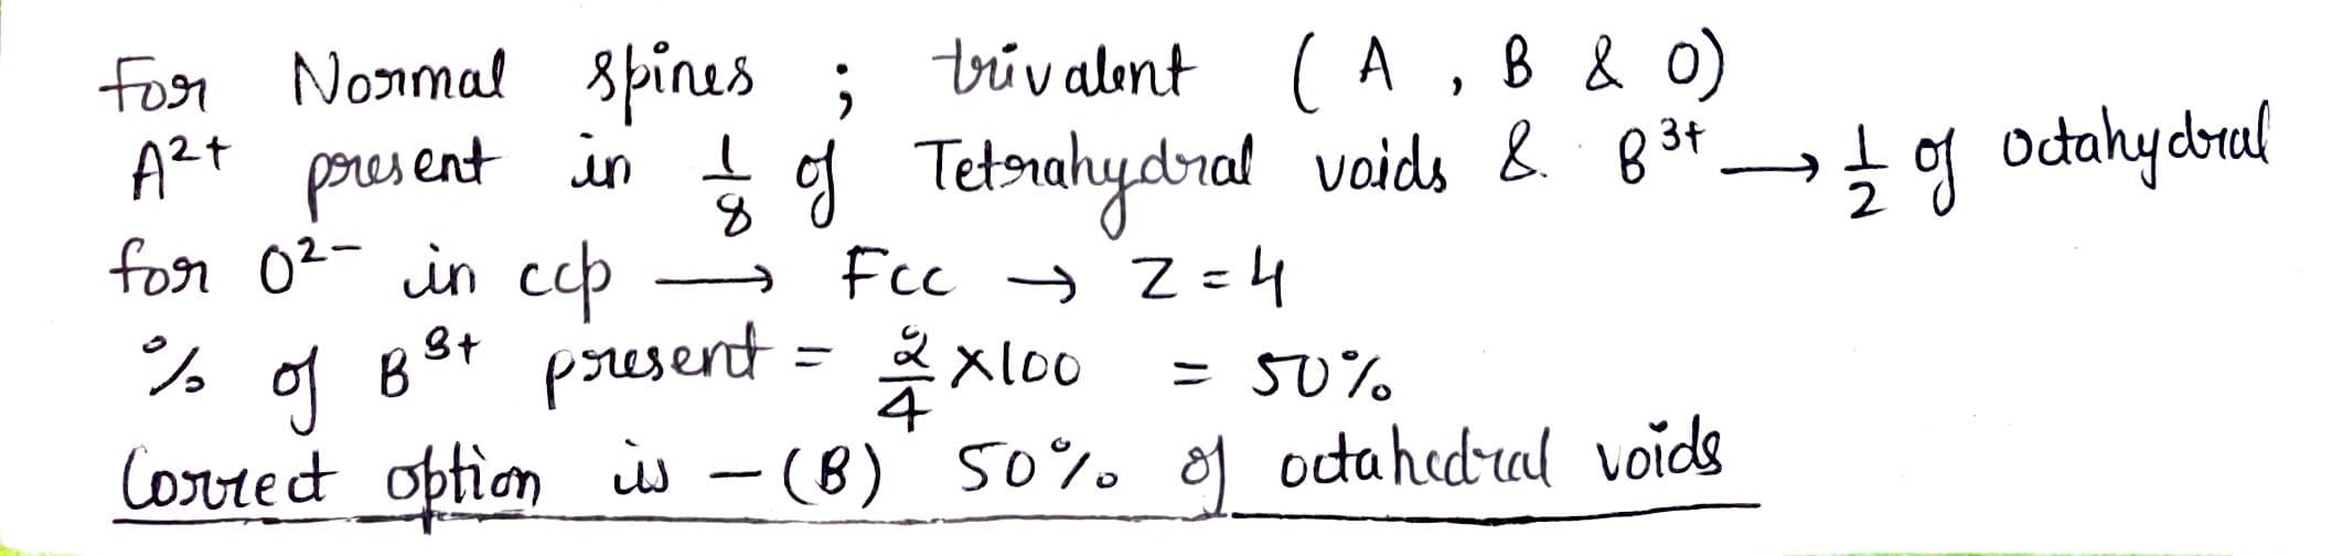 For Normal spines ; trivalent ( A , B & O)
A²⁺ present in 1/8 of Tetrahydral voids & B³⁺ → 1/2 of Octahydral
for O²⁻ in ccp → Fcc → Z = 4
% of B³⁺ present = 2/4 ×100 = 50%
Correct option is – (B) 50% of octahedral voids